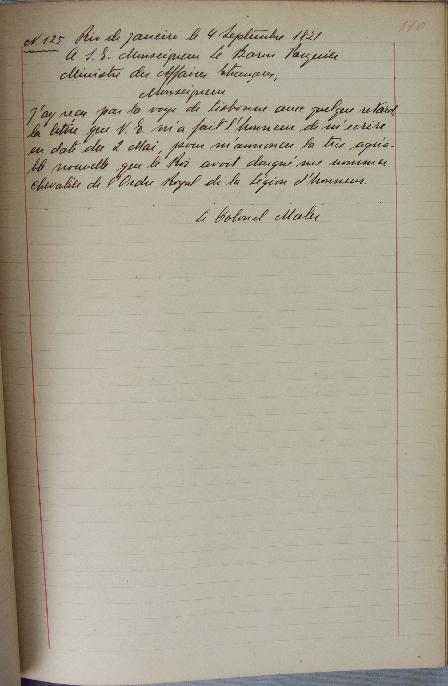 110
N. 125 Rio de janeiro le 4 Septembre 1821
A S. E. Monseigneur Le Baron Pasquier
Ministre des Affaires Etrangeres,
Monseigneur
J'ay reçu par la voye de Lisbonne avec quelque retard,
la lettre que V. E. m'a fait l'honneur de m'ecrire
en date du 2 Mai, pour m'annoncer la très agréa-
ble nouvelle que le Roi avoit daigné me nommer
Chevalier de l'Ordre Royal de la Légion d'honneur.
Le Colonel Maler